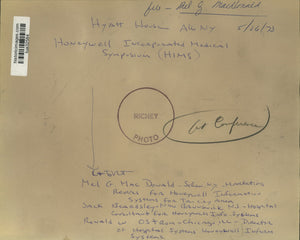 file - Mel G. MacDonald
Hyatt House Alb NY 5/26/73
Honeywell Incorporated Medical
Symposium (HIMS)
RICHEY
PHOTO
Art Conference
L to R
Mel G. Mac Donald - Sch. NY Marketing
Rep for Honeywell Information
Systems for Tri City Area
Jack Beardsley - New Brunswick NJ - Hospital
Consultant for Honeywell Info Systems
Ronald W. Ostrum - Chicago Ill - Director
of Hospital Systems Honeywell Inform
Systems